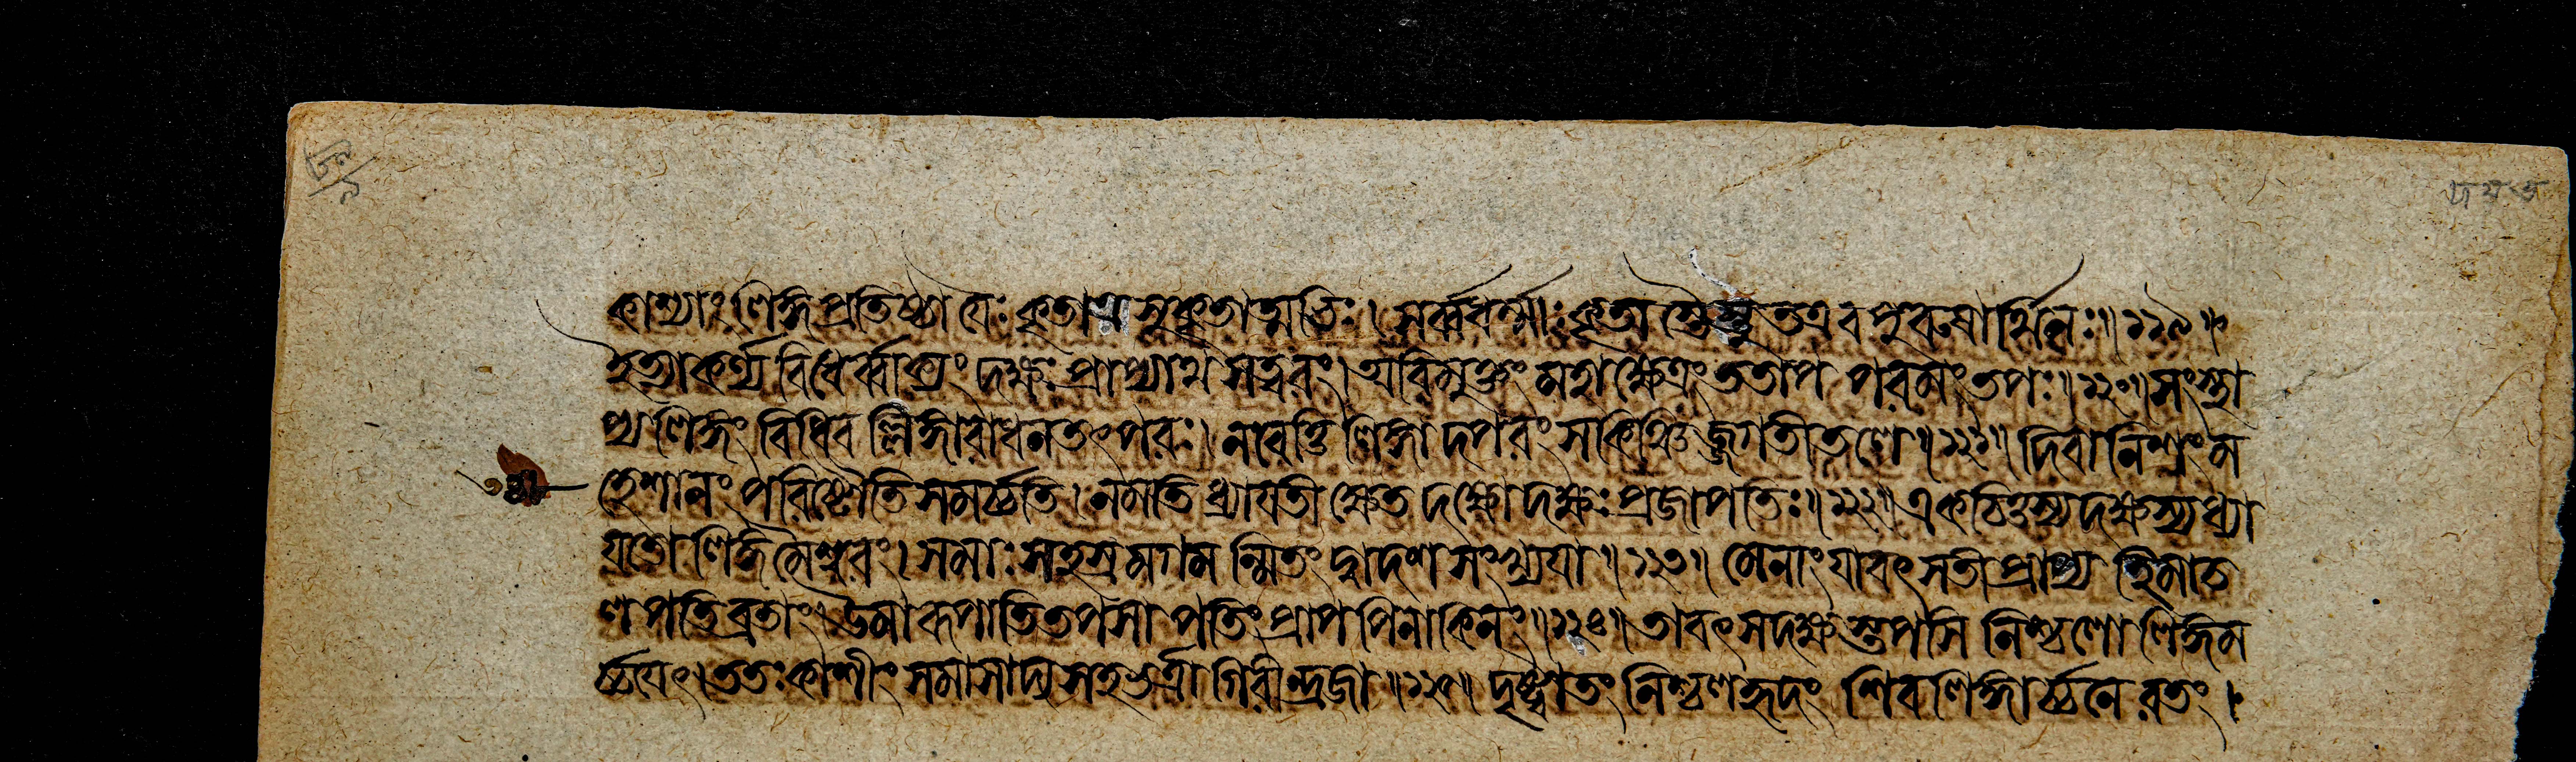 কাশ্যাং লিঙ্গপ্রতিষ্ঠা যৈঃ কৃতাত্র সুকৃতাত্মভিঃ। সর্ব্বধর্ম্মাঃ কৃতাস্তৈস্তু তএব পুরুষার্থিনঃ॥১১৯॥
ইত্যাকর্ণ্য বিধের্ব্বাক্যং দক্ষঃ প্রাপ্যাথ সত্বরং। অবিমুক্তং মহাক্ষেত্রং ততাপ পরমং তপঃ॥১২০॥ সংস্থা
প্য লিঙ্গং বিধিবল্লিঙ্গারাধনতৎপরঃ। নবেত্তি লিঙ্গাদপরং সকিঞ্চিজ্জগতীতলে॥১২১॥ দিবানিশং ম
হেশানং পরিষ্টৌতি সমর্চ্চতি। নমতি ধ্যায়তীক্ষেত দক্ষো দক্ষঃ প্রজাপতিঃ॥১২২॥ একচিত্তস্য দক্ষস্য ধ্যা
য়তো লিঙ্গমৈশ্বরং। সমাঃ সহস্রমগমন্মিতং দ্বাদশসংখ্যয়া॥১২৩॥ মেনাং যাবৎ সতী প্রাপ্য হিমাচ
লপতিব্রতাং। উমারূপাতিতপসা পতিং প্রাপ পিনাকিনং॥১২৪॥ তাবৎ সদক্ষস্তপসি নিশ্চলো লিঙ্গম
র্চ্চয়ৎ। ততঃ কাশীং সমাসাদ্য সহভর্ত্রা গিরীন্দ্রজা॥১২৫॥ দৃষ্ট্বাতং নিশ্চলহৃদং শিবলিঙ্গার্চ্চনে রতং।